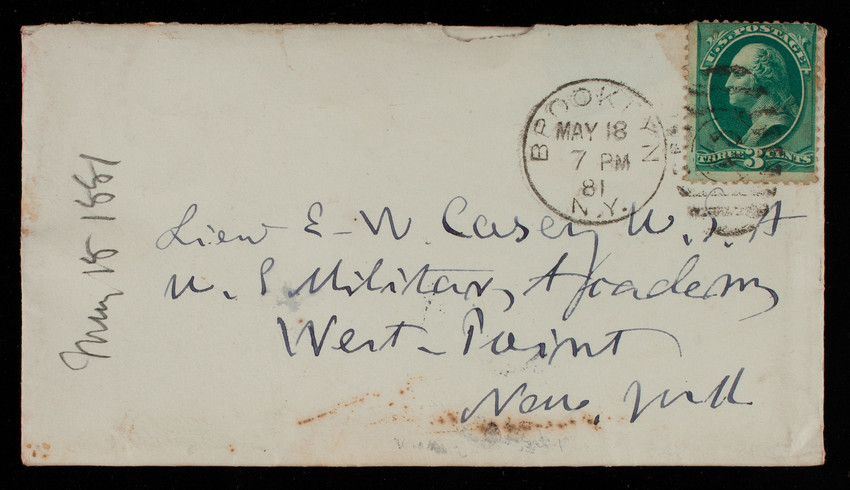 U.S. POSTAGE
THREE 3 CENTS
BROOKLYN
MAY 18
7 PM
81
N.Y.
May 18 1881
Lieu E-W. Casey U.S.A
U.S Military Academy
West-Point
New York